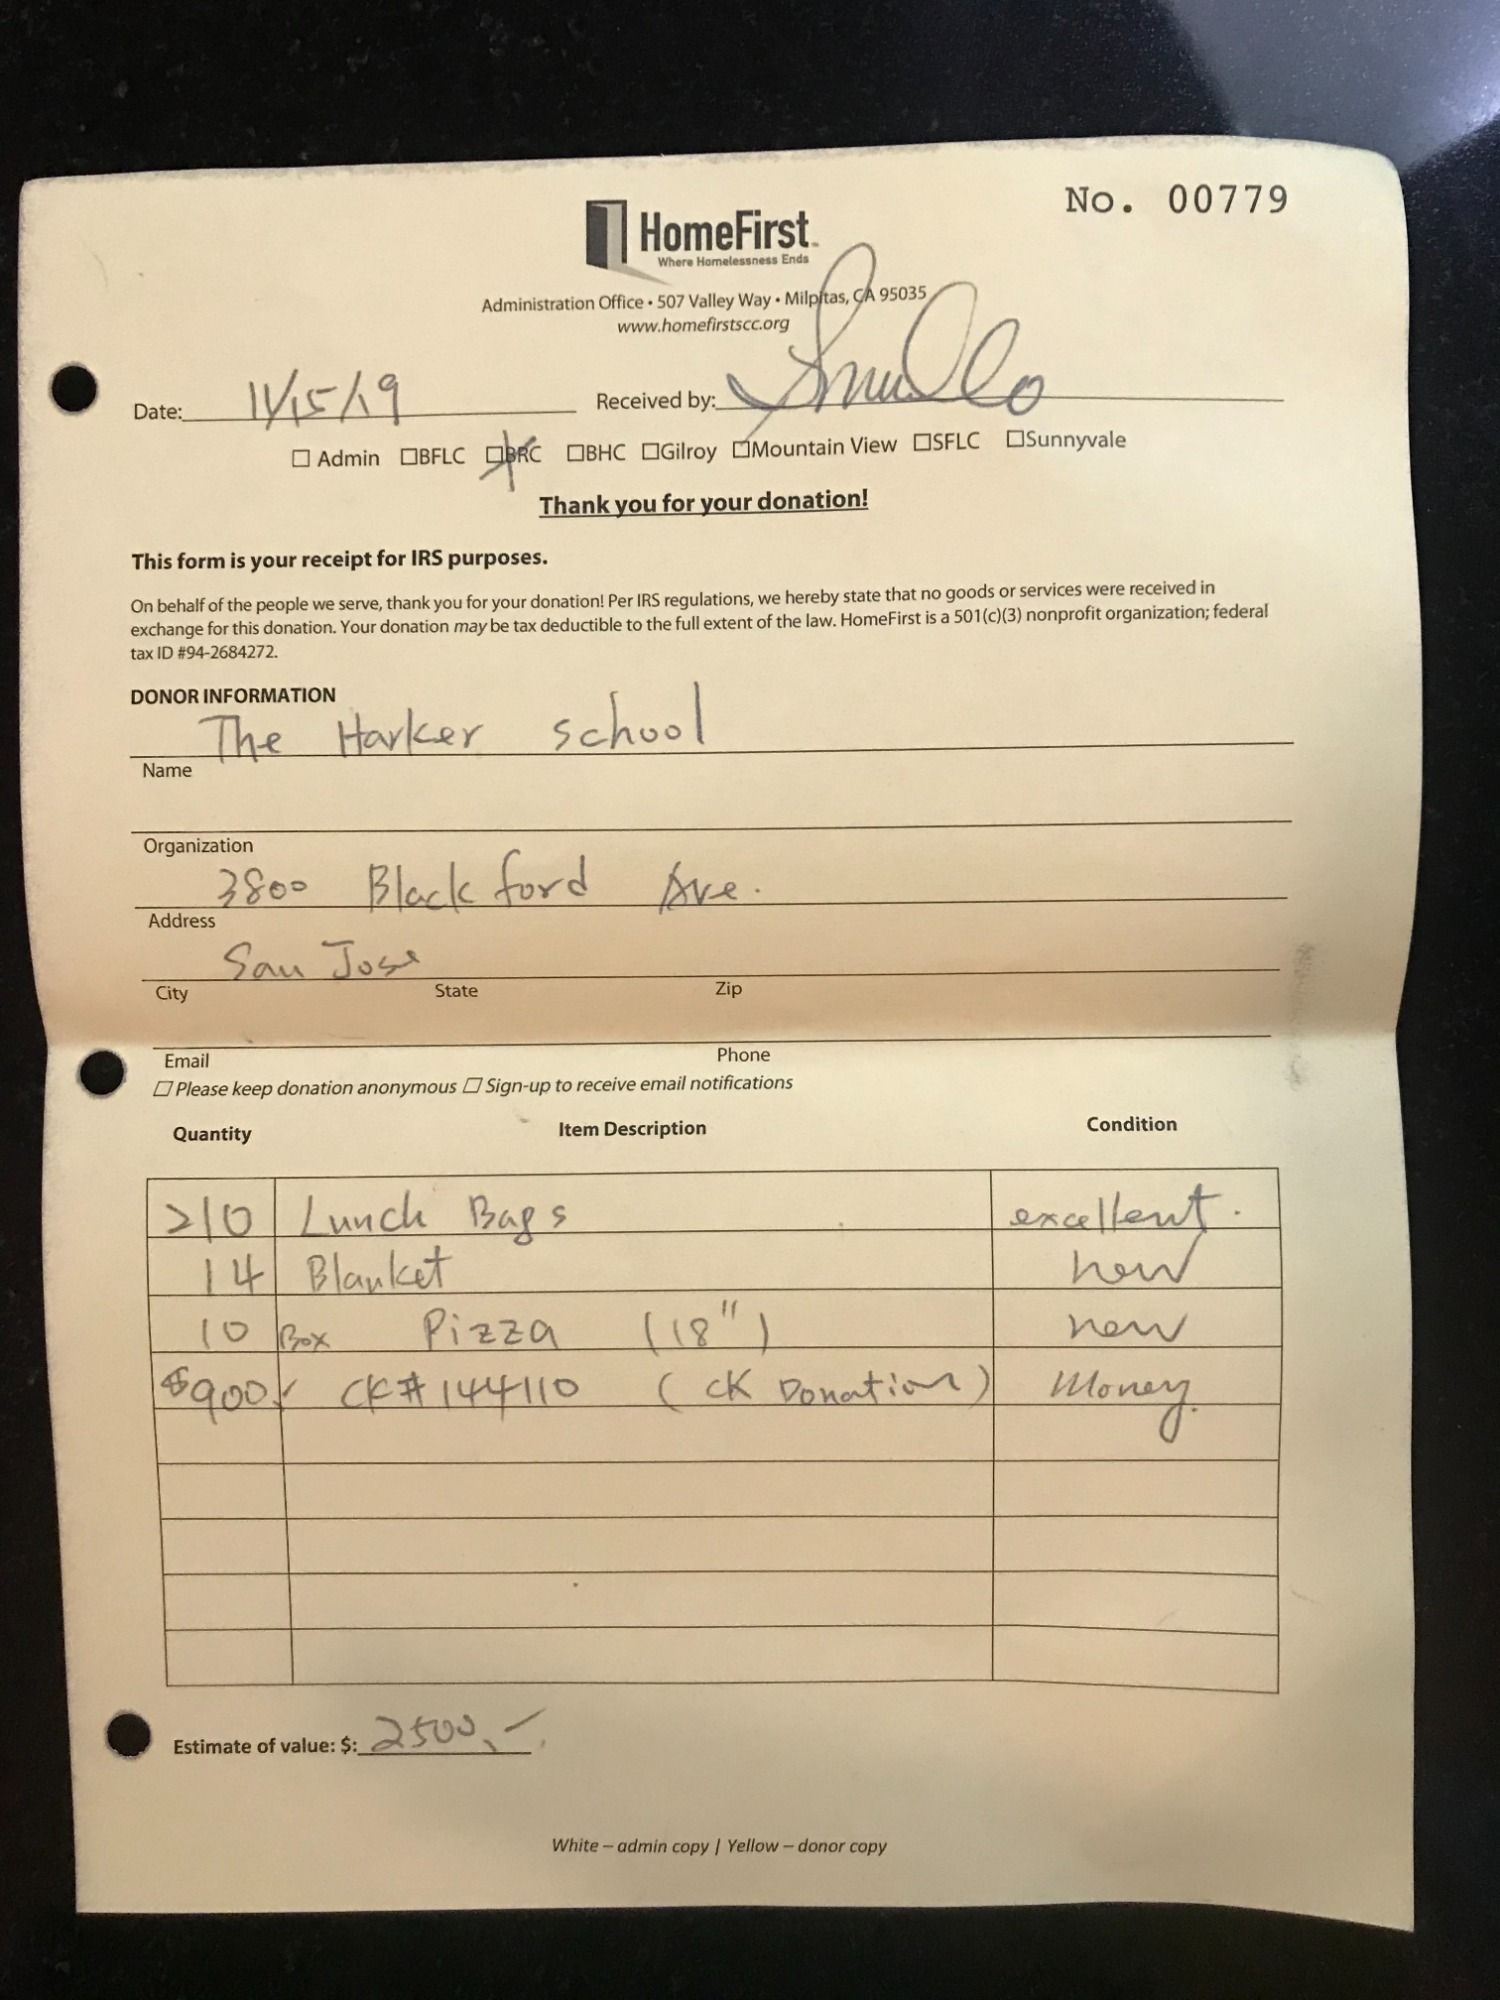 No. 00779
HomeFirst
Where Homelessness Ends
Administration Office • 507 Valley Way • Milpitas, CA 95035
www.homefirstscc.org
Date: 11/15/19 Received by:
☐ Admin ☐BFLC ☐BRC ☐BHC ☐Gilroy ☐Mountain View ☐SFLC ☐Sunnyvale
Thank you for your donation!
This form is your receipt for IRS purposes.
On behalf of the people we serve, thank you for your donation! Per IRS regulations, we hereby state that no goods or services were received in
exchange for this donation. Your donation may be tax deductible to the full extent of the law. HomeFirst is a 501(c)(3) nonprofit organization; federal
tax ID #94-2684272.
DONOR INFORMATION
The Harker school
Name
Organization
3800 Blackford Ave.
Address
San Jose
City State Zip
Email Phone
☐ Please keep donation anonymous ☐ Sign-up to receive email notifications
Quantity Item Description Condition
210 Lunch Bags excellent.
14 Blanket new
10 Box Pizza (18") new
$900.- CK# 144110 (CK Donation) Money.
Estimate of value: $: 2500.-
White – admin copy | Yellow – donor copy